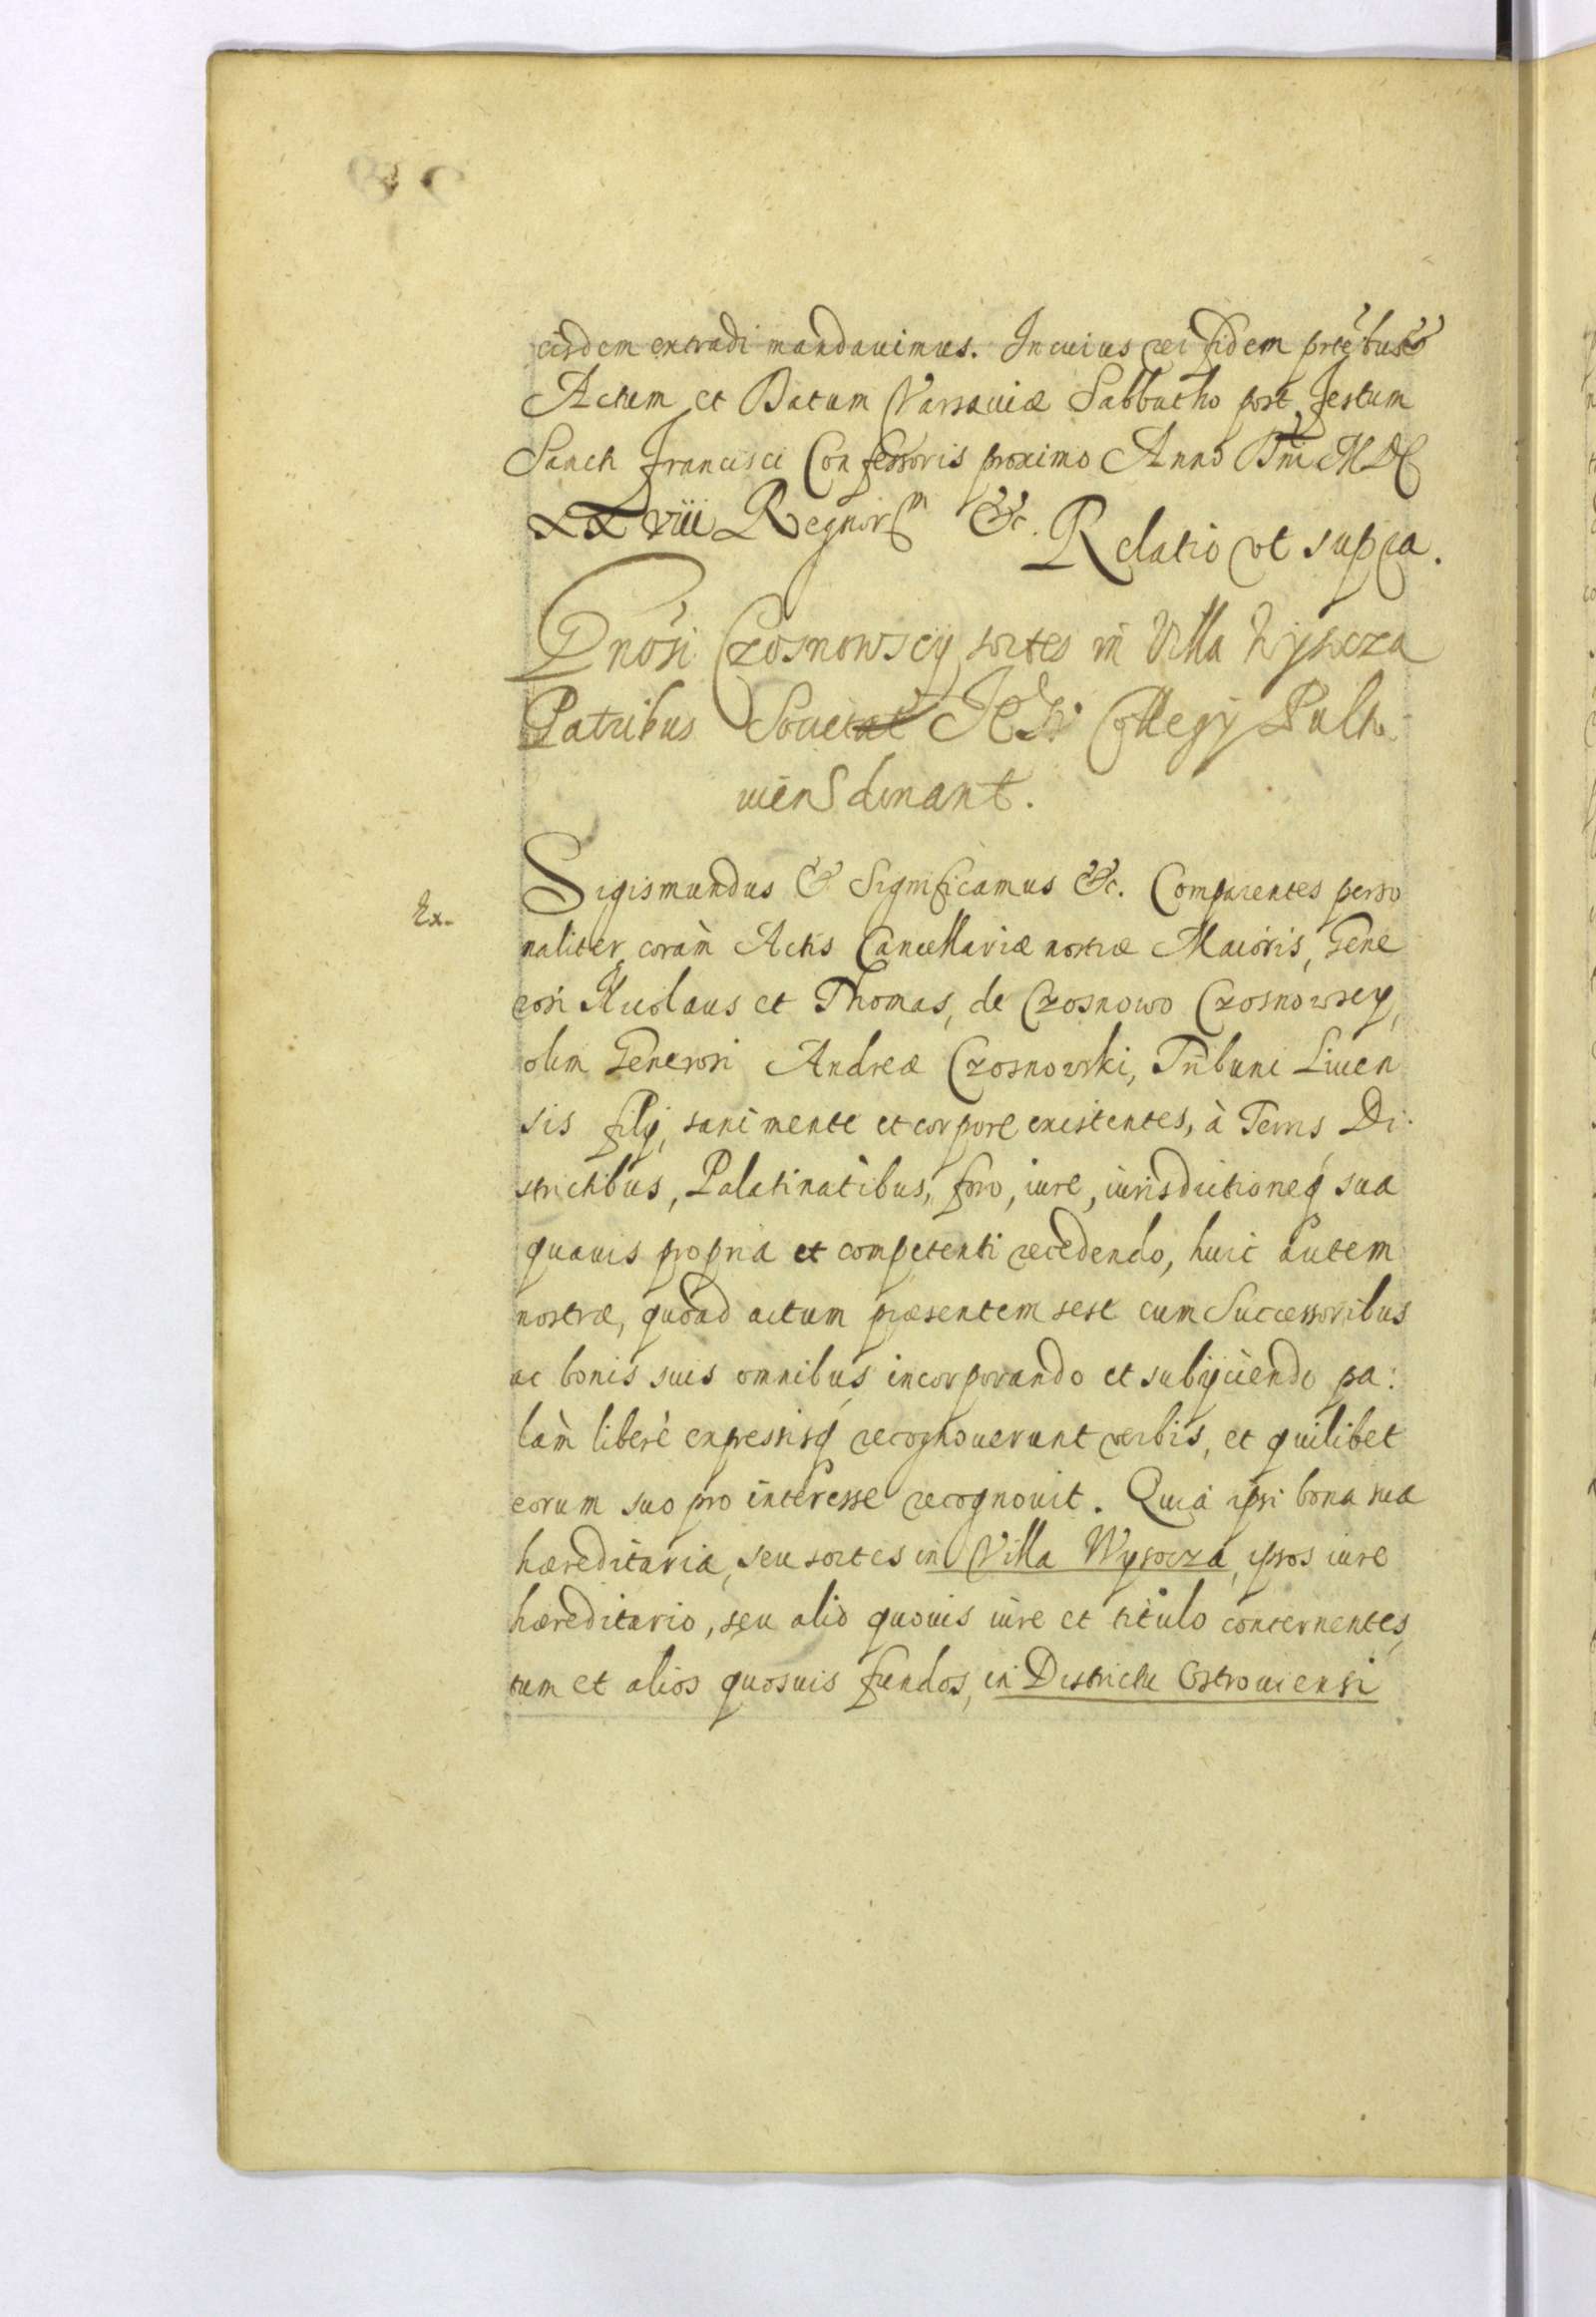 eisdem extradi mandauimus. In cuius rei fidem pntibus &
Actum et Datum Varsauiæ Sabbatho post Festum
Sancti Francisci Confessoris proximo Anno Dni MDC
XXVIII Regnorm &c. Relatio vt supra.
Gnosi Czosnowscÿ sortes in Villa Wysocza
Patribus Societat Jesu Collegÿ Pulto
uien donant.
Ex.
Sigismundus & Significamus &c. Comparentes perso
naliter coràm Actis Cancellariæ nostræ Maioris, Gene
rosi Nicolaus et Thomas, de Czosnowo Czosnowscy,
olim Generosi Andreæ Czosnowski, Tribuni Liuen
sis filÿ, sani mente et corpore existentes, à Terris Di
strictibus, Palatinatibus, foro, iure, iurisdictioneq́ sua
quauis propria et competenti recedendo, huic autem
nostræ, quoad actum præsentem sese cum Successoribus
ac bonis suis omnibus incorporando et subÿciendo pa:
làm liberè expressisq́ recognouerunt verbis, et quilibet
eorum suo pro interesse recognouit. Quia ipsi bona sua
hæreditaria, seu sortes in Villa Wysocza, ipsos iure
hæreditario, seu alio quouis iure et titulo concernentes,
tum et alios quosuis fundos, in Districtu Ostrouiensi